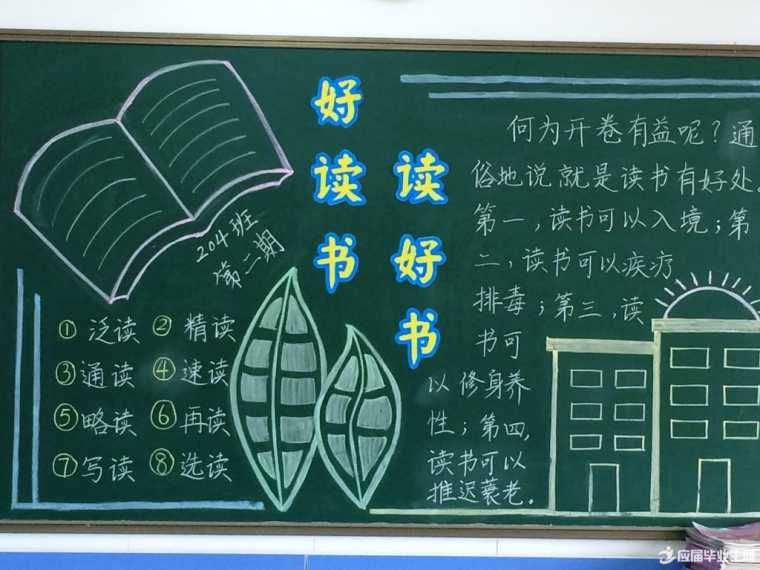 好读书
读好书
204班
第二期
① 泛读 ② 精读
③ 通读 ④ 速读
⑤ 略读 ⑥ 再读
⑦ 写读 ⑧ 选读
何为开卷有益呢？通
俗地说就是读书有好处。
第一，读书可以入境；第
二，读书可以疾疗
排毒；第三，读
书可
以修身养
性；第四，
读书可以
推迟蓑老。
应届毕业生网